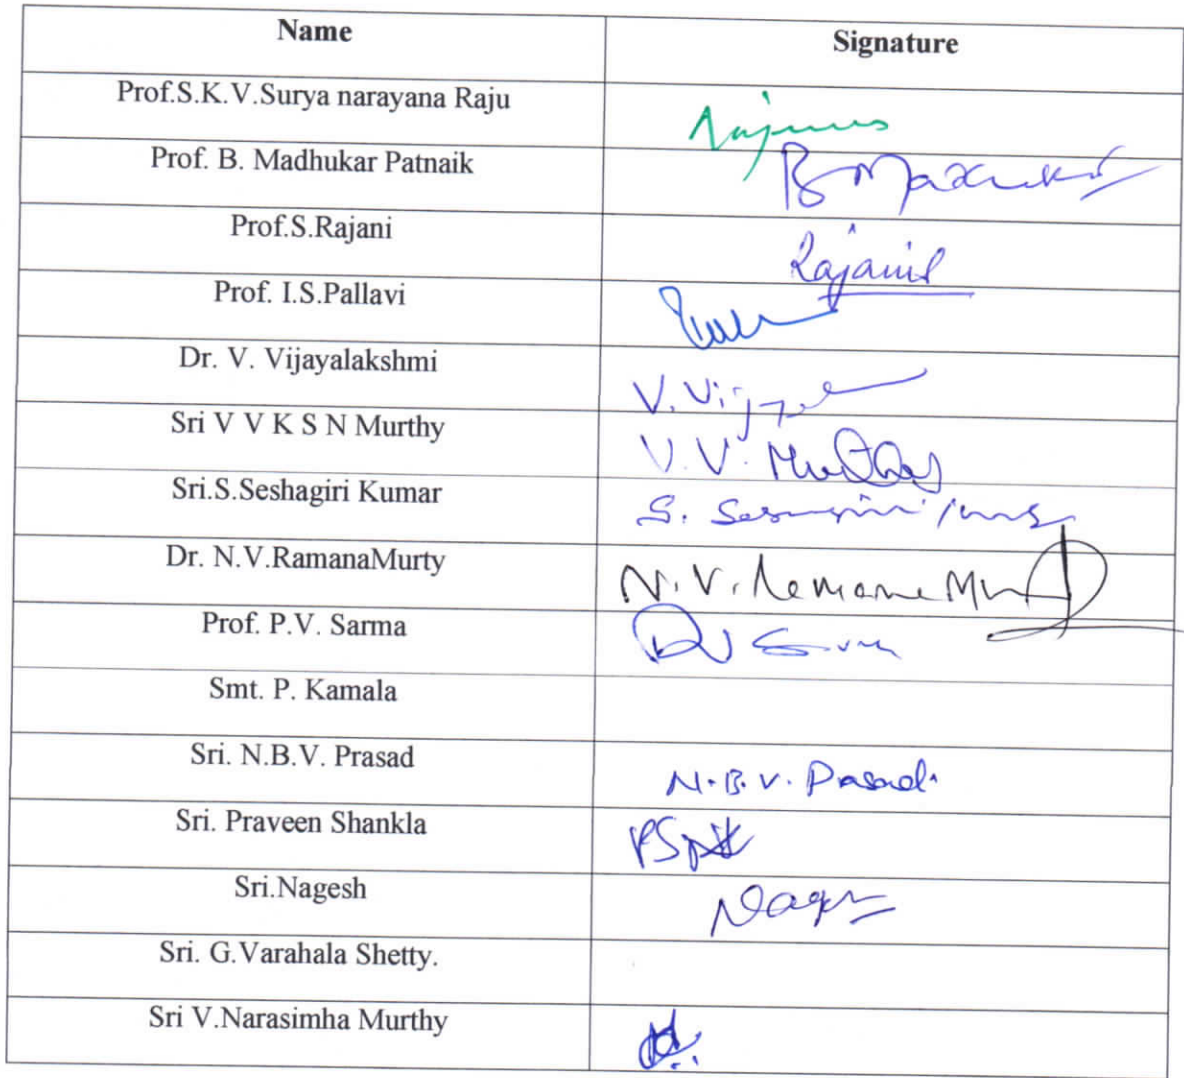 Name Signature
Prof.S.K.V.Surya narayana Raju
Prof. B. Madhukar Patnaik B Madhukar
Prof.S.Rajani Rajani
Prof. I.S.Pallavi
Dr. V. Vijayalakshmi V.
Sri V V K S N Murthy V.V. Murthy
Sri.S.Seshagiri Kumar S.
Dr. N.V.RamanaMurty N.V.
Prof. P.V. Sarma
Smt. P. Kamala
Sri. N.B.V. Prasad N.B.V. Prasad.
Sri. Praveen Shankla
Sri.Nagesh
Sri. G.Varahala Shetty.
Sri V.Narasimha Murthy